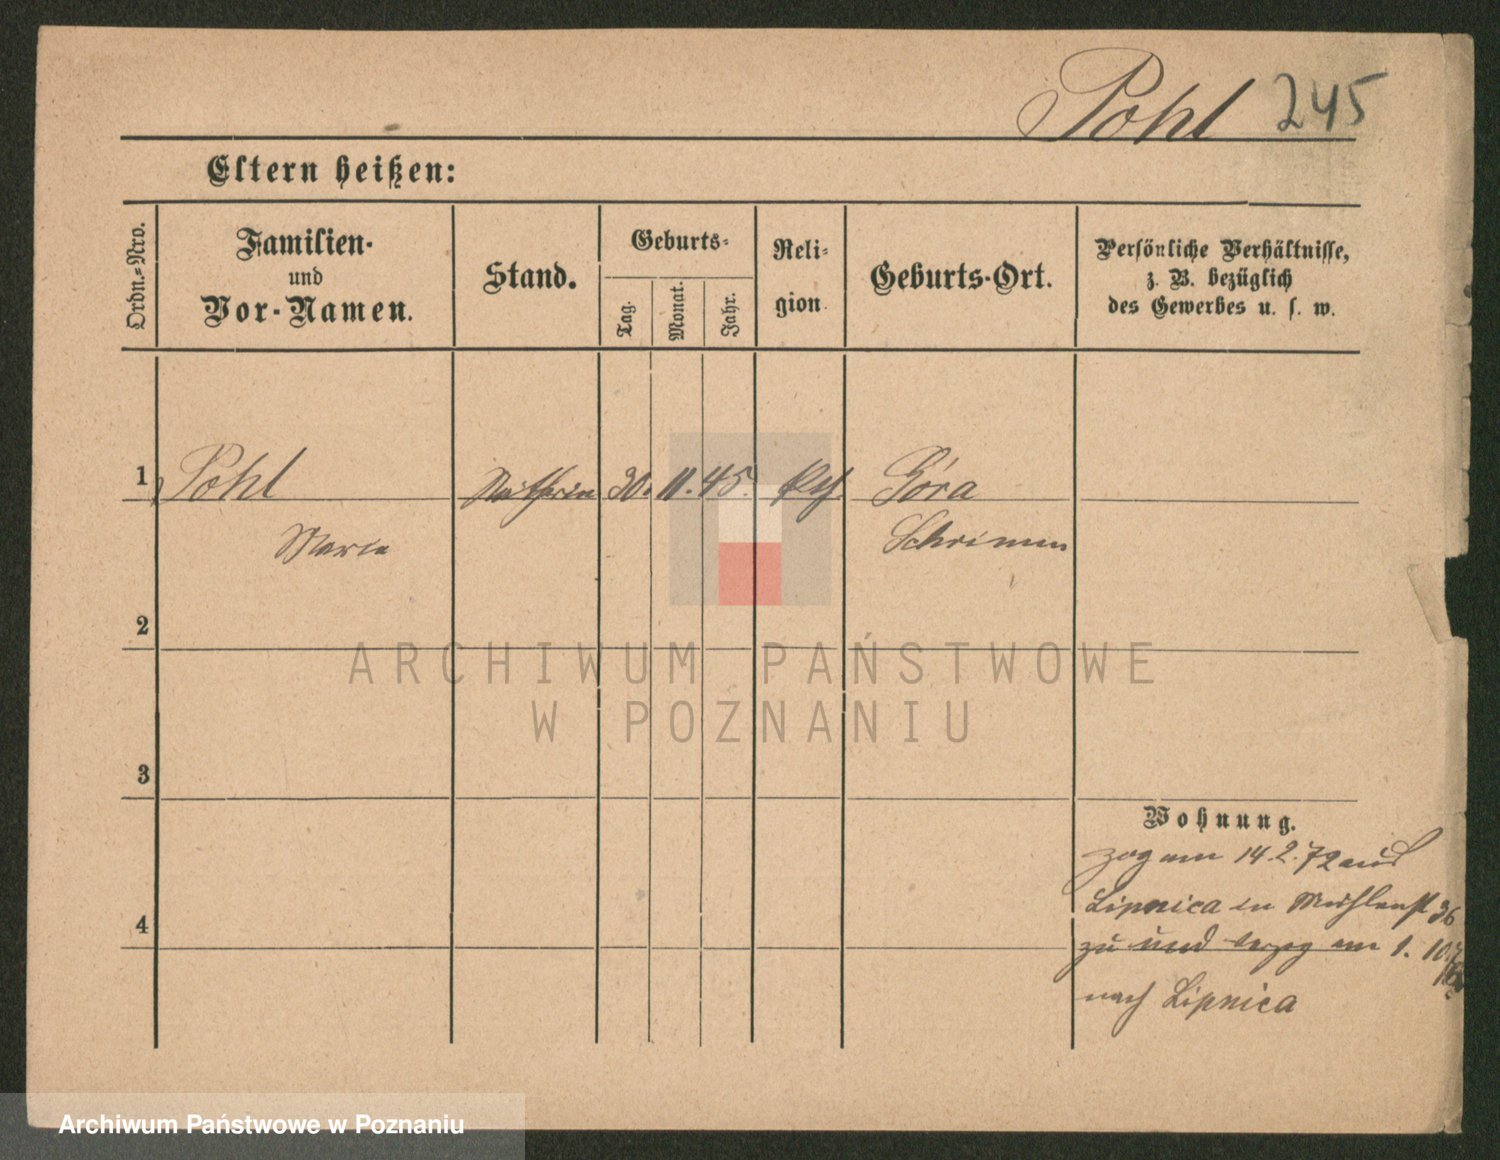 Pohl 245
Eltern heißen:
Ordn.=Nro.
Familien-
und
Vor-Namen.
Stand.
Geburts-
Tag.
Monat.
Jahr.
Reli-
gion.
Geburts-Ort.
Persönliche Verhältnisse,
z. B. bezüglich
des Gewerbes u. s. w.
1 Pohl 30. 11. 45. Góra
Marie Schrimm
2
ARCHIWUM PAŃSTWOWE
W POZNANIU
3
Wohnung.
zog am 14.2.72 aus
Lipnica in Mühlenst 36
4
zu und verzog am 1. 10.
nach Lipnica
Archiwum Państwowe w Poznaniu